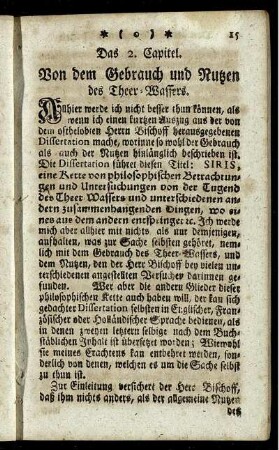 * ( o ) * 15
Das 2. Capitel.
Von dem Gebrauch und Nutzen
des Theer-Wassers.
Allhier werde ich nicht besser thun können, als
wenn ich einen kurtzen Auszug aus der von
dem offtbelobten Herrn Bischoff herausgegebenen
Dissertation mache, worinne so wohl der Gebrauch
als auch der Nutzen hinlänglich beschrieben ist.
Die Dissertation führet diesen Titel: SIRIS,
eine Kette von philosophischen Betrachtun-
gen und Untersuchungen von der Tugend
des Theer Wassers und unterschiedenen an-
dern zusammenhangenden Dingen, wo ei-
nes aus dem andern entspringet ꝛc. Ich werde
mich aber allhier mit nichts als nur demjenigen,
aufhalten, was zur Sache selbsten gehöret, nem-
lich mit dem Gebrauch des Theer-Wassers, und
dem Nutzen, den der Herr Bischoff bey vielen un-
terschiedenen angestellten Versuchen darinnen ge-
funden. Wer aber die andern Glieder dieser
philosophischen Kette auch haben will, der kan sich
gedachter Dissertation selbsten in Englischer, Fran-
zösischer oder Holländischer Sprache bedienen, als
in denen zweyen letztern selbige nach dem Buch-
stäblichen Inhalt ist übersetzet worden; Wiewohl
sie meines Erachtens kan entbehret werden, son-
derlich von denen, welchen es um die Sache selbst
zu thun ist.
Zur Einleitung versichert der Herr Bischoff,
daß ihm nichts anders, als der allgemeine Nutzen
des